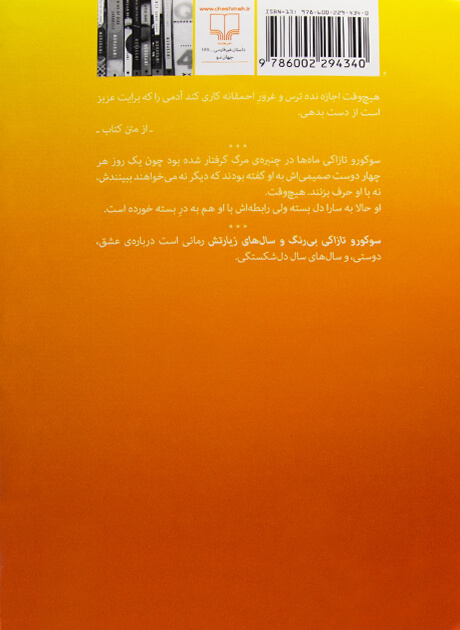 www.cheshmeh.ir
داستان غیرفارسی
جهان نو
ISBN(13): 978-600-229-434-0
9 786002 294340
هیچ‌وقت اجازه نده ترس و غرور احمقانه کاری کند آدمی را که برایت عزیز
است از دست بدهی.
ـ از متن کتاب ـ
* * *
سوکورو تازاکی ماه‌ها در چنبره‌ی مرگ گرفتار شده بود چون یک روز هر
چهار دوست صمیمی‌اش به او گفته بودند که دیگر نه می‌خواهند ببینندش،
نه با او حرف بزنند. هیچ‌وقت.
او حالا به سارا دل بسته ولی رابطه‌اش با او هم به در بسته خورده است.
* * *
سوکورو تازاکی بی‌رنگ و سال‌های زیارتش رمانی است درباره‌ی عشق،
دوستی، و سال‌های سال دل‌شکستگی.